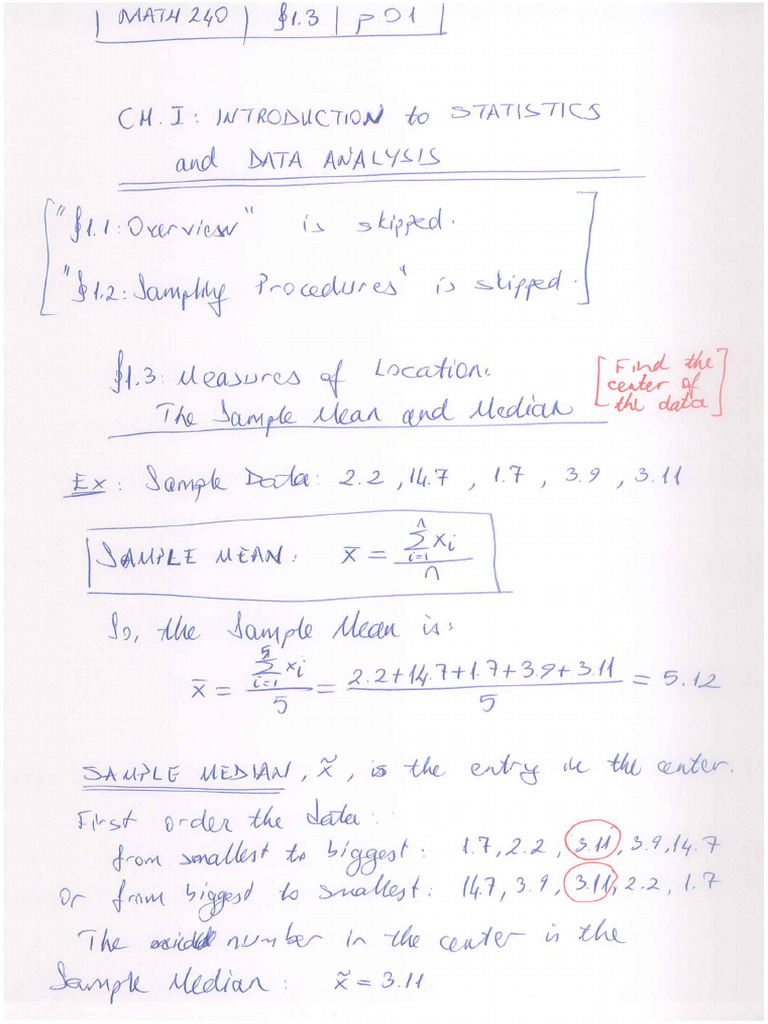 MATH 240 | §1.3 | p.01
CH.I: INTRODUCTION to STATISTICS
and DATA ANALYSIS
"§1.1: Overview" is skipped.
"§1.2: Sampling Procedures" is skipped.
§1.3: Measures of Location:
The Sample Mean and Median
[Find the
center of
the data]
Ex: Sample Data: 2.2, 14.7, 1.7, 3.9, 3.11
SAMPLE MEAN: x̄ = (∑_{i=1}^{n} xi) / n
So, the Sample Mean is:
x̄ = (∑_{i=1}^{5} xi) / 5 = (2.2+14.7+1.7+3.9+3.11) / 5 = 5.12
SAMPLE MEDIAN, x̃, is the entry in the center.
First order the data:
from smallest to biggest: 1.7, 2.2, 3.11, 3.9, 14.7
Or from biggest to smallest: 14.7, 3.9, 3.11, 2.2, 1.7
The number in the center is the
Sample Median: x̃ = 3.11.